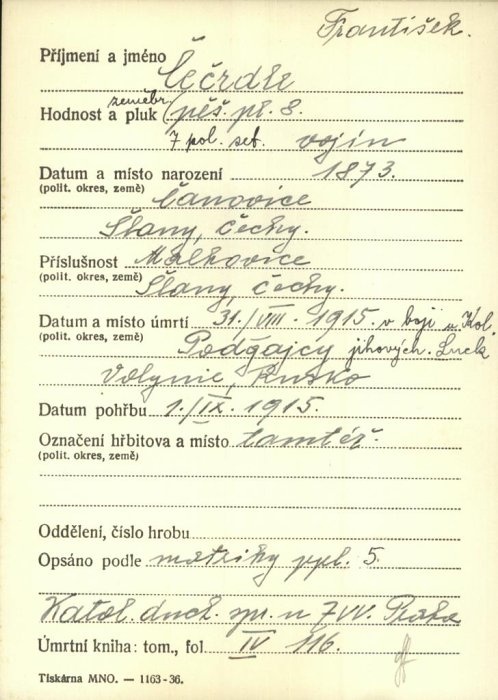 František.
Příjmení a jméno Čečrdle
Hodnost a pluk zeměbr. pěš. pl. 8.
7 pol. set. vojín
Datum a místo narození 1873.
(polit. okres, země) Čanovice
Šlany, Čechy.
Příslušnost Malkovice
(polit. okres, země) Šlany, Čechy.
Datum a místo úmrtí 31./VIII. 1915. v boji u Kol.
(polit. okres, země) Podgajcy jihových. Luck
Volynie, Rusko
Datum pohřbu 1./IX. 1915.
Označení hřbitova a místo tamtéž.
(polit. okres, země)
Oddělení, číslo hrobu
Opsáno podle matriky ppl. 5.
Katol. duch. spr. u 7 VV. Praha
Úmrtní kniha: tom., fol. IV 116.
Tiskárna MNO. — 1163-36.